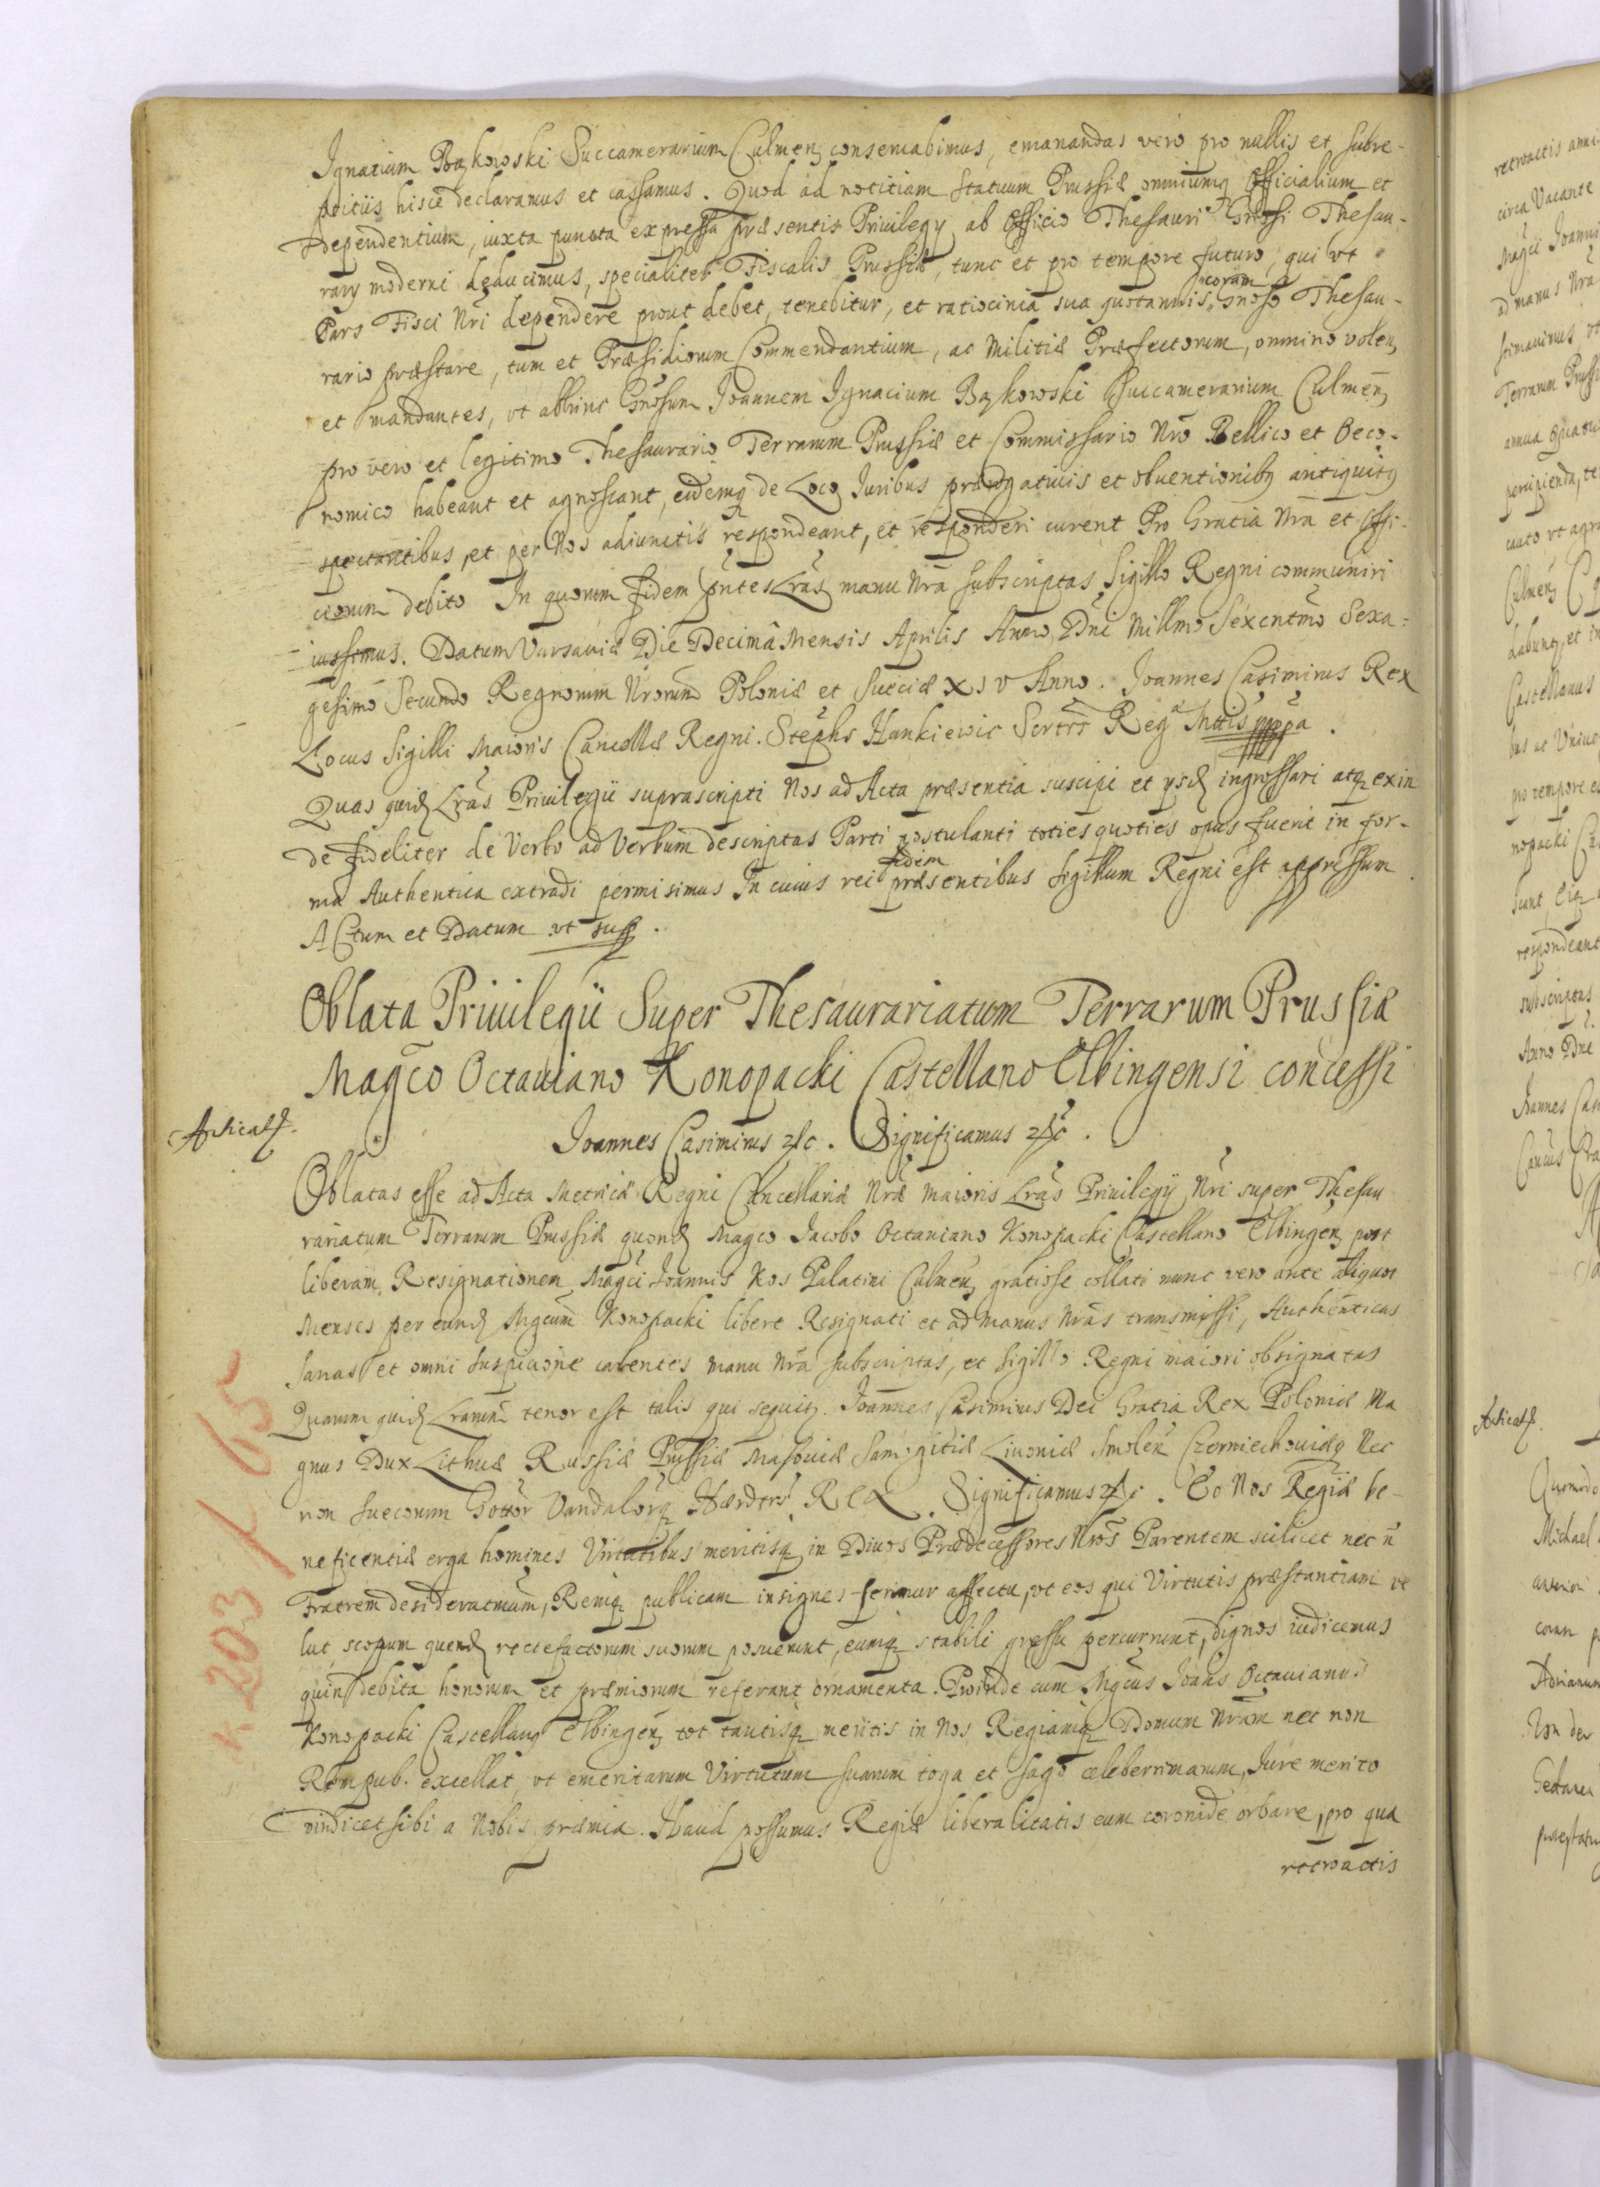 Ignatium Bąkowski Succamerarium Culmen conseruabimus, emanandas vero pro nullis et subre-
ptitiis hisce declaramus et cassamus. Quod ad notitiam Statuum Prussiæ omniumq Officialium et
Dependentium, iuxta puncta expressa præsentis Privilegy ab Officio Thesauri Gnosi Thesau-
rary moderni deducimus, specialiter Fiscalis Prussiæ, tunc et pro tempore futuro, qui vt
Pars Fisci Nri dependere prout debet, tenebitur, et ratiocinia sua quotannis coram Gnoso Thesau-
rario præstare, tum et Præsidiorum Commendantium, ac Militiæ Præfectorum, omnino volen
et mandantes, vt abhinc Gnosum Joannem Ignacium Bąkowski Succamerarium Culmen
pro vero et legitimo Thesaurario Terrarum Prussiæ et Commissario Nro Bellico et Oeco-
nomico habeant et agnoscant, eidemq de Loco Iuribus prærogatiuis et obuentionibq antiquitq
spectantibus, et per Nos adiunctis respondeant, et responderi curent Pro Gratia Nra et Offi-
ciorum debito In quorum fidem pntes Lras manu Nra subscriptas Sigillo Regni communiri
iussimus. Datum Varsauiæ Die Decimâ Mensis Aprilis Anno Dni Millmo Sexcntmo Sexa-
gesimo Secundo Regnorum Nrorum Poloniæ et Sueciæ XIV Anno. Joannes Casimirus Rex
Locus Sigilli Maioris Cancellæ Regni. Stephs Hankiewic Scrtrs Reg Mttis mppa.
Quas quid Lras Priuilegii suprascripti Nos ad Acta præsentia suscipi et ysd ingrossari atq exin
de fideliter de Verbo ad Verbum descriptas Parti postulanti toties quoties opus fuerit in for-
ma Authentica extradi permisimus In cuius rei fidem præsentibus Sigillum Regni est appressum
Actum et Datum vt sup.
Oblata Priuilegii Super Thesaurariatum Terrarum Prussiæ
Magco Octauiano Konopacki Castellano Elbingensi concessi
Joannes Casimirus etc. Significamus etc.
Oblatas esse ad Acta Metricæ Regni Cancellariæ Nræ Maioris Lras Priuilegy Nri super Thesau
rariatum Terrarum Prussiæ quond Magco Jacobo Octauiano Konopacki Castellano Elbingen post
liberam Resignationem Magci Joannis Kos Palatini Culmen gratiose collati nunc vero ante aliquot
Menses per eund Mgcum Konopacki libere Resignati et ad Manus Nras transmissi, Authenticas
sanas et omni suspicione carentes manu Nra subscriptas, et Sigillo Regni maiori obsignatas
Quarum quid Lrarum tenor est talis qui sequitq. Joannes Casimirus Dei Gratia Rex Poloniæ Ma
gnus Dux Lithuæ Russiæ Prussiæ Masouiæ Samogitiæ Liuoniæ Smolen Czerniechouiæq Nec
non Suecorum Gottor Vandalorq Hærdtrs Rex. Significamus etc. Eo Nos Regiæ be-
neficentiæ erga homines Virtutibus meritisq in Diuos Prædecessores Nros Parentem scilicet nec n
Fratrem desideratmum, Remq publicam insignes ferimur affectu, vt eos qui Virtutis præstantiam ve
lut scopum quend rectefactorum suorum posuerunt, eumq stabili gressu percurrunt, dignos iudicemus
quin debita honorum et præmiorum referant ornamenta. Proinde cum Mgcus Joans Octauianus
Konopacki Castellanq Elbingen tot tantisq meritis in Nos Regiamq Domum Nram nec non
Rempub. excellat, vt emeritarum Virtutum suarum toga et sago celeberrimarum, Jure merito
vindicet sibi a Nobis præmia. Haud possumus Regiæ liberalitatis eum coronide orbare, pro qua
retroactis
203/65